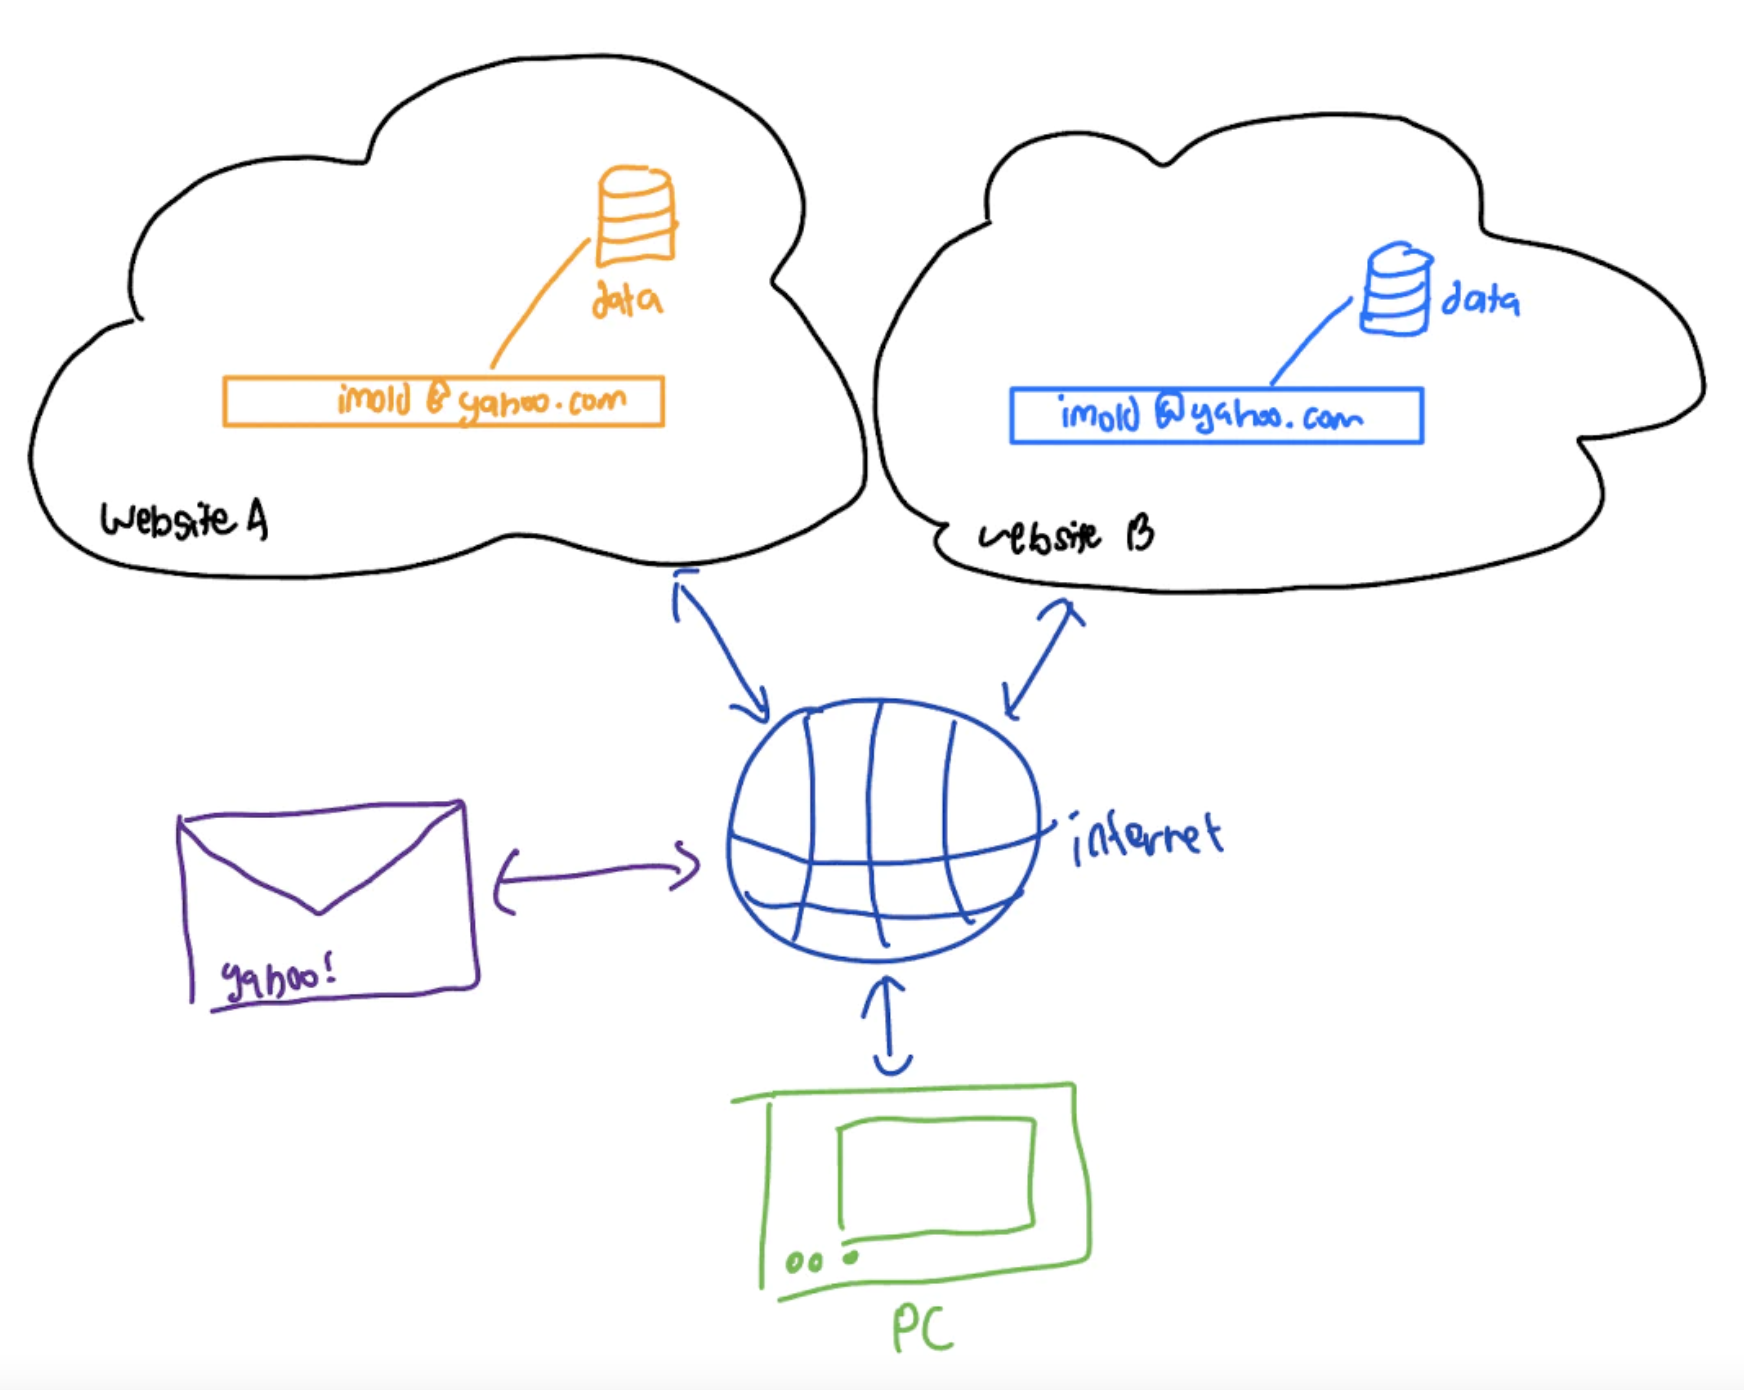 data
imold @ yahoo.com
Website A
data
imold @yahoo.com
website B
internet
yahoo!
PC